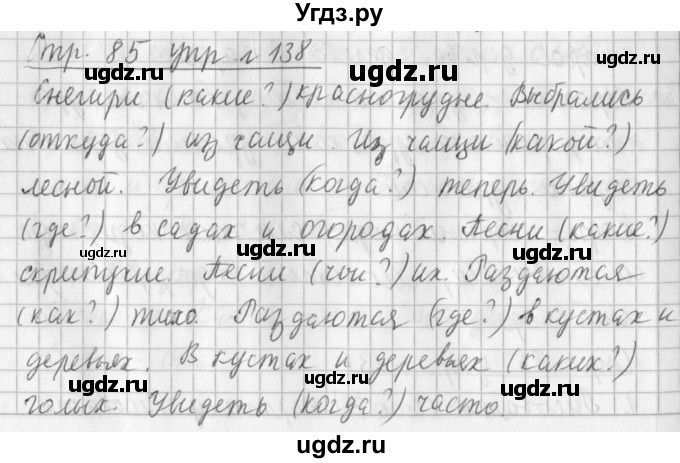 Угдз.ру
Стр. 85 упр. 138
ugdz.ru ugdz.ru
Снегири (какие?) красногрудые. Выбрались
ugdz.ru ugdz.ru
(откуда?) из чащи. Из чащи (какой?)
ugdz.ru
лесной. Увидеть (когда?) теперь. Увидеть
ugdz.ru ugdz.ru
(где?) в садах и огородах. Песни (какие?)
ugdz.ru ugdz.ru
скрипучие. Песни (чьи?) их. Раздаются
ugdz.ru ugdz.ru
(как?) тихо. Раздаются (где?) в кустах и
ugdz.ru
деревьях. В кустах и деревьях (каких?)
ugdz.ru ugdz.ru
голых. Увидеть (когда?) часто.
ugdz.ru